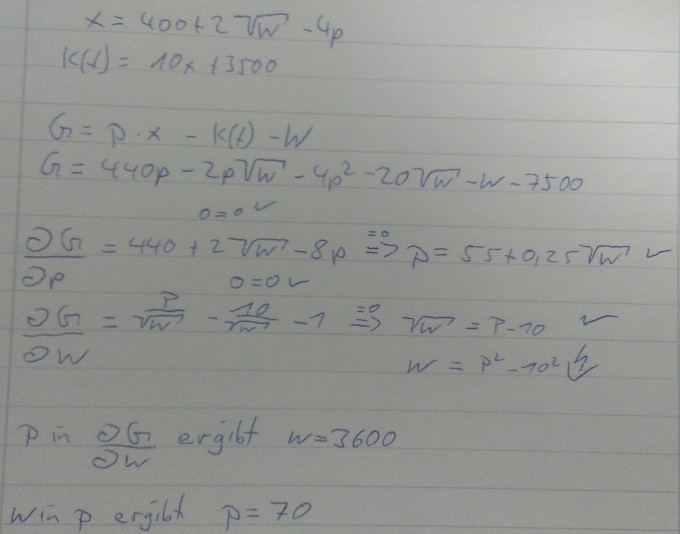 x = 400+2√w - 4p
K(t) = 10x+3500
G = p·x - K(t) - W
G = 440p - 2p√w - 4p² - 20√w - w - 7500
0=0 ✓
∂G/∂p = 440 + 2√w - 8p =0 ⇒ p = 55+0,25√w ✓
0=0 ✓
∂G/∂W = p/√w - 10/√w - 1 =0 ⇒ √w = P-10 ✓
W = p² - 10² ↯
p in ∂G/∂W ergibt w=3600
W in p ergibt p=70